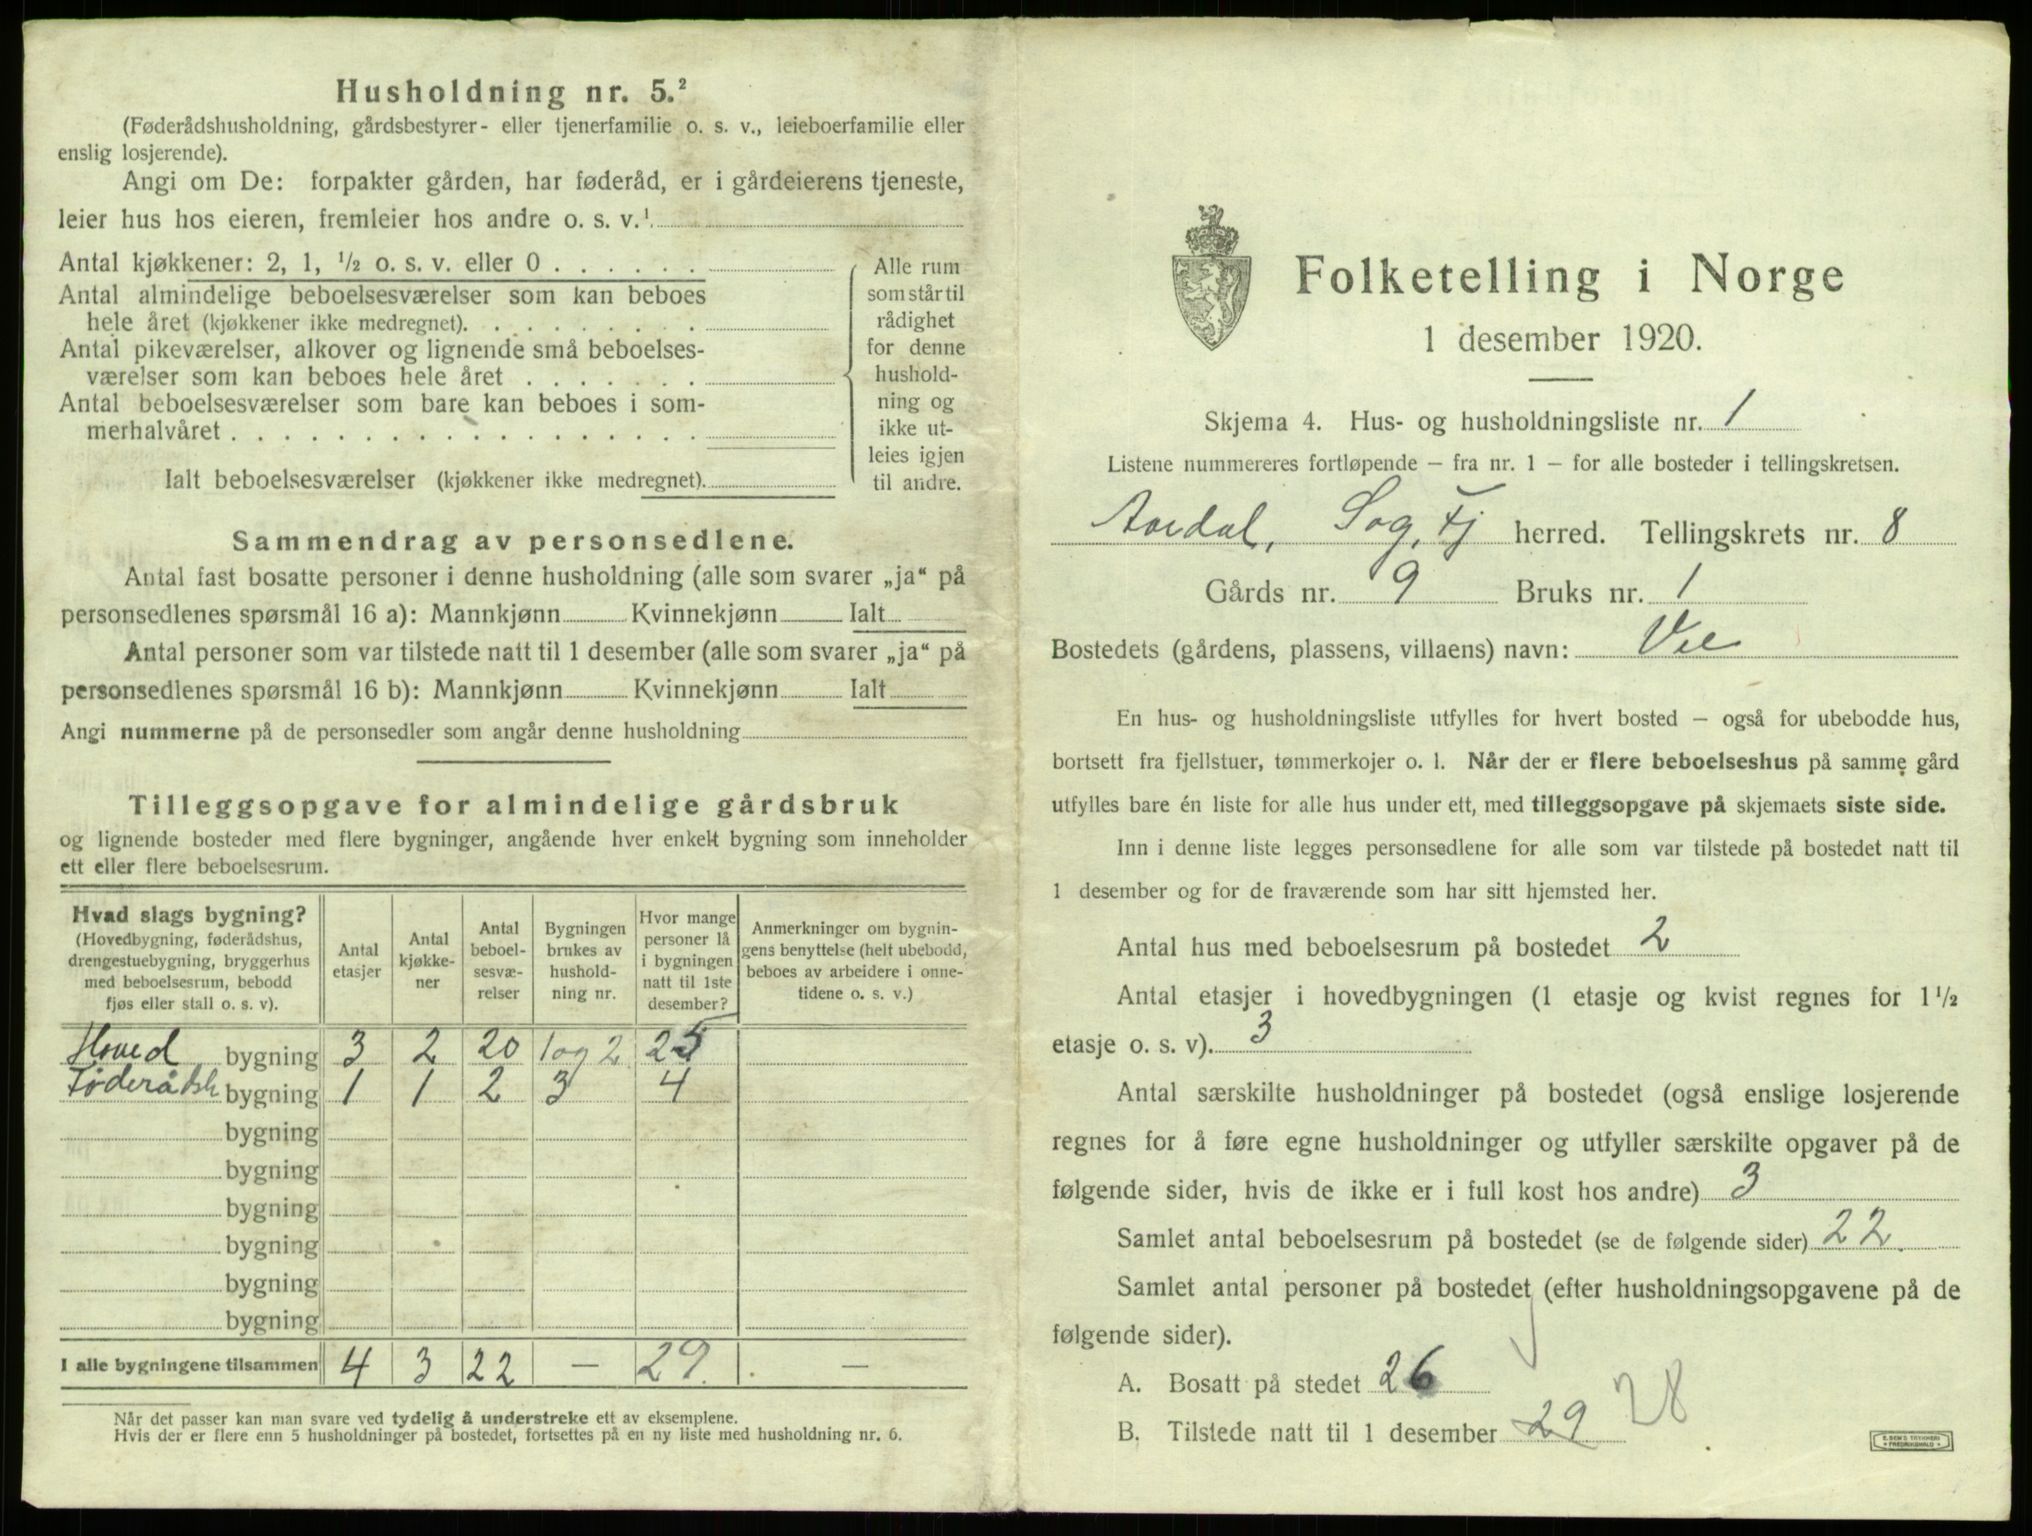 Husholdning nr. 5.²
(Føderådshusholdning, gårdsbestyrer- eller tjenerfamilie o. s. v., leieboerfamilie eller
enslig losjerende).
Angi om De: forpakter gården, har føderåd, er i gårdeierens tjeneste,
leier hus hos eieren, fremleier hos andre o. s. v.¹
Antal kjøkkener: 2, 1, ½ o. s. v. eller 0 . . . . . .
Antal almindelige beboelsesværelser som kan beboes
hele året (kjøkkener ikke medregnet). . . . . . . . .
Antal pikeværelser, alkover og lignende små beboelses-
værelser som kan beboes hele året . . . . . . .
Antal beboelsesværelser som bare kan beboes i som-
merhalvåret . . . . . . . . . . . . . . . . . .
Ialt beboelsesværelser (kjøkkener ikke medregnet).
Alle rum
som står til
rådighet
for denne
hushold-
ning og
ikke ut-
leies igjen
til andre.
Sammendrag av personsedlene.
Antal fast bosatte personer i denne husholdning (alle som svarer „ja“ på
personsedlenes spørsmål 16 a): Mannkjønn Kvinnekjønn Ialt
Antal personer som var tilstede natt til 1 desember (alle som svarer „ja“ på
personsedlenes spørsmål 16 b): Mannkjønn Kvinnekjønn Ialt
Angi nummerne på de personsedler som angår denne husholdning
Tilleggsopgave for almindelige gårdsbruk
og lignende bosteder med flere bygninger, angående hver enkelt bygning som inneholder
ett eller flere beboelsesrum.
Hvad slags bygning?
(Hovedbygning, føderådshus,
drengestuebygning, bryggerhus
med beboelsesrum, bebodd
fjøs eller stall o. s. v).
Antal
etasjer
Antal
kjøkke-
ner
Antal
beboel-
sesvæ-
relser
Bygningen
brukes av
hushold-
ning nr.
Hvor mange
personer lå
i bygningen
natt til 1ste
desember?
Anmerkninger om bygnin-
gens benyttelse (helt ubebodd,
beboes av arbeidere i onne-
tidene o. s. v.)
Hoved bygning 3 2 20 1 og 2 25
Føderådsh bygning 1 1 2 3 4
bygning
bygning
bygning
bygning
bygning
bygning
I alle bygningene tilsammen 4 3 22 — 29. —
Når det passer kan man svare ved tydelig å understreke ett av eksemplene.
Hvis der er flere enn 5 husholdninger på bostedet, fortsettes på en ny liste med husholdning nr. 6.
Folketelling i Norge
1 desember 1920.
Skjema 4. Hus- og husholdningsliste nr. 1
Listene nummereres fortløpende – fra nr. 1 – for alle bosteder i tellingskretsen.
Aardal, Sog, Fj herred. Tellingskrets nr. 8
Gårds nr. 9 Bruks nr. 1
Bostedets (gårdens, plassens, villaens) navn: Vee
En hus- og husholdningsliste utfylles for hvert bosted – også for ubebodde hus,
bortsett fra fjellstuer, tømmerkojer o. l. Når der er flere beboelseshus på samme gård
utfylles bare én liste for alle hus under ett, med tilleggsopgave på skjemaets siste side.
Inn i denne liste legges personsedlene for alle som var tilstede på bostedet natt til
1 desember og for de fraværende som har sitt hjemsted her.
Antal hus med beboelsesrum på bostedet 2
Antal etasjer i hovedbygningen (1 etasje og kvist regnes for 1½
etasje o. s. v). 3
Antal særskilte husholdninger på bostedet (også enslige losjerende
regnes for å føre egne husholdninger og utfyller særskilte opgaver på de
følgende sider, hvis de ikke er i full kost hos andre) 3
Samlet antal beboelsesrum på bostedet (se de følgende sider) 22.
Samlet antal personer på bostedet (efter husholdningsopgavene på de
følgende sider).
A. Bosatt på stedet 26
B. Tilstede natt til 1 desember 29 28
E. SEM'S TRYKKERI
FREDRIKSHALD